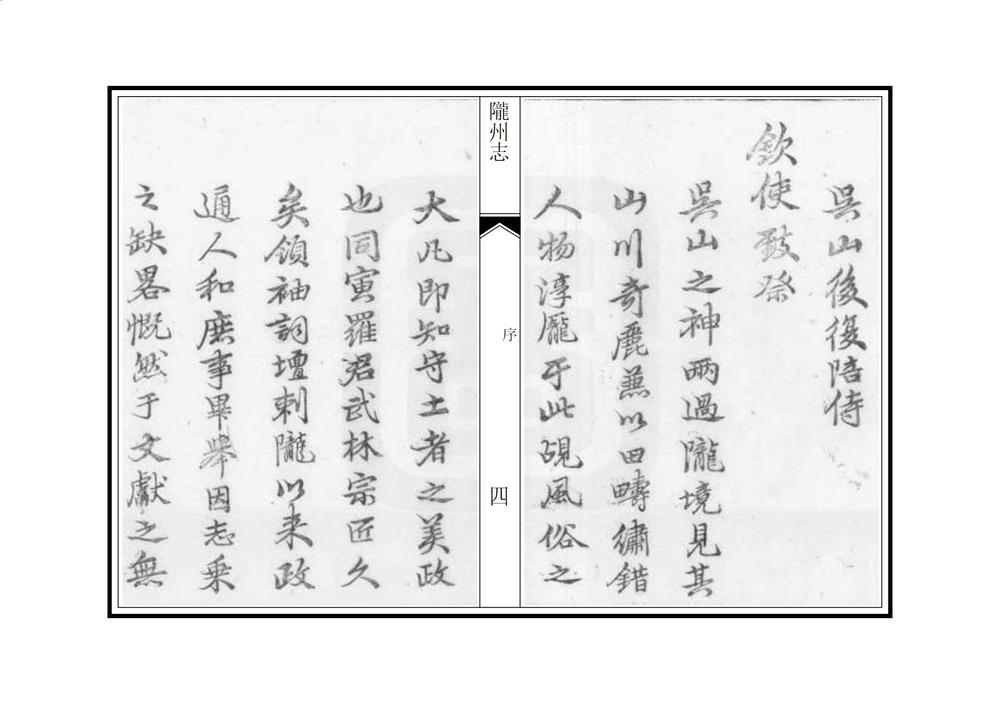 吳山後復陪侍
欽使致祭
吳山之神兩過隴境見其
山川奇麗兼以田疇繡錯
人物淳龎于此覘風俗之
隴州志
序
四
大凡即知守土者之美政
也同寅羅君武林宗匠久
矣領袖詞壇刺隴以来政
通人和庶事畢舉因志乗
之缺畧慨然于文獻之無